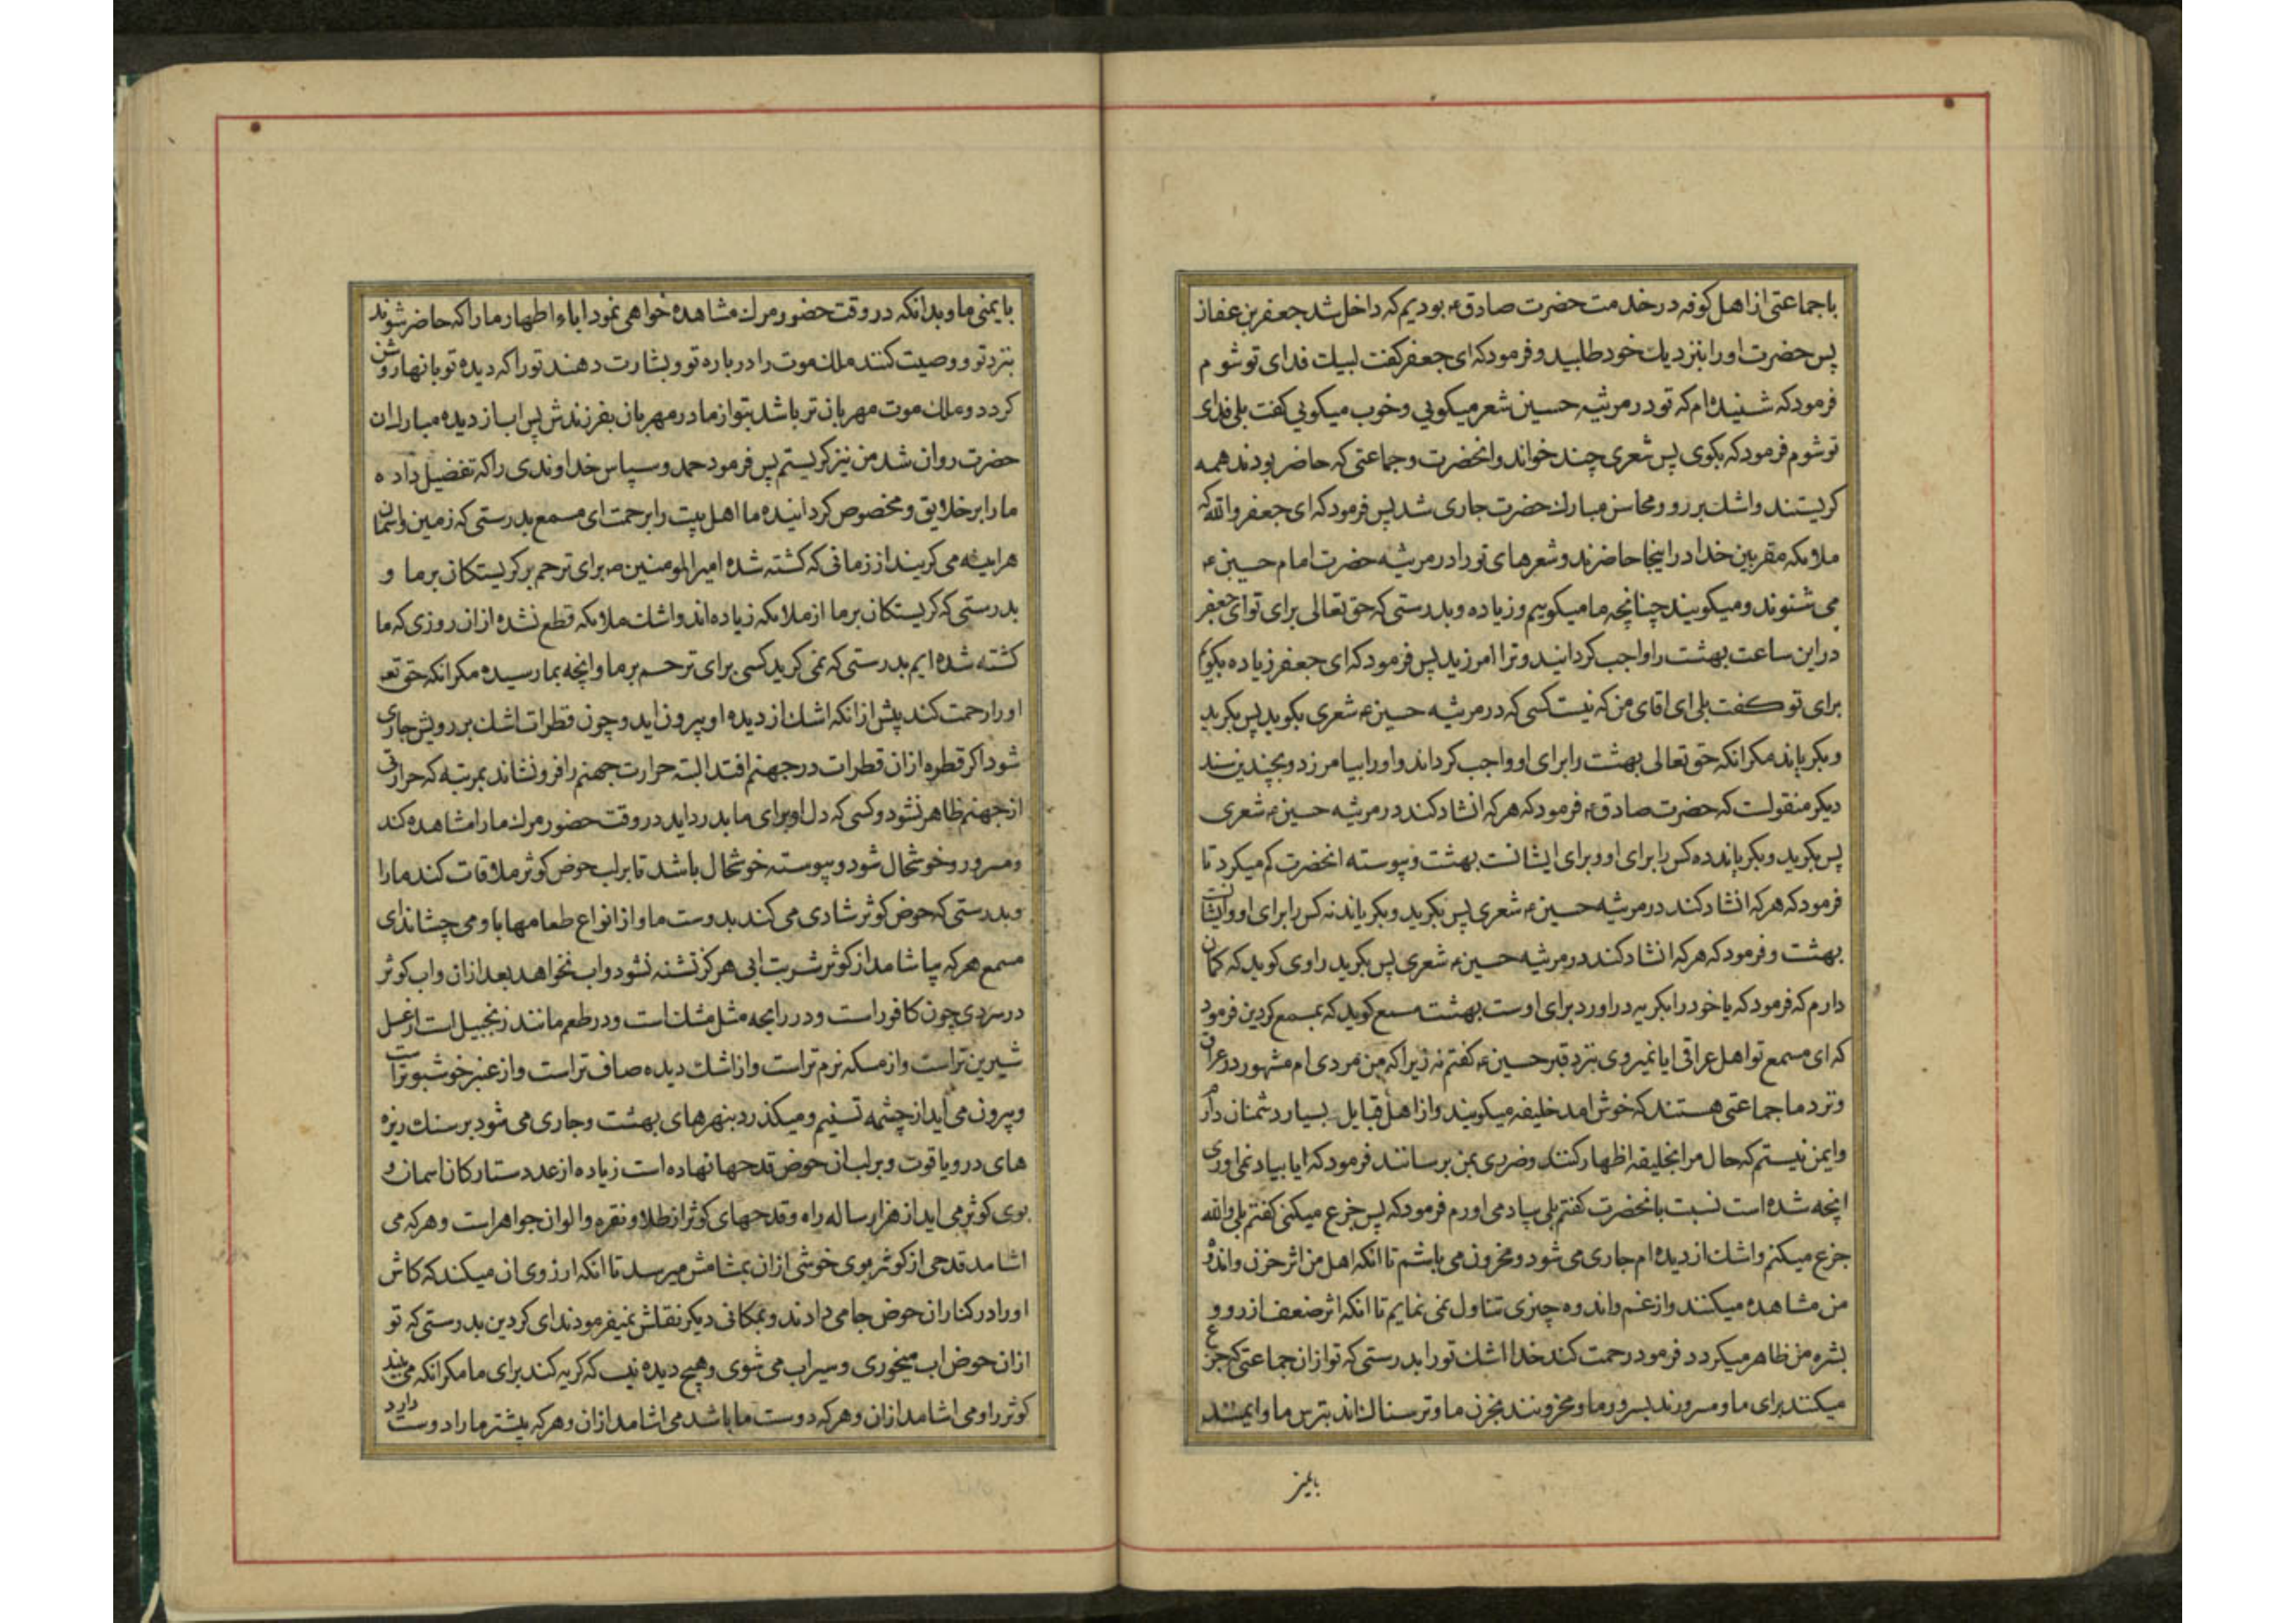 با جماعتی از اهل کوفه در خدمت حضرت صادق ع بودیم که داخل شد جعفر بن عفاز
پس حضرت او را بنزدیك خود طلبید و فرمود که ای جعفر کفت لبیك فدای تو شوم
فرمود که شنیده‌ام که تو در مرثیه حسین شعر میکویی و خوب میکویی کفت بلی فدای
تو شوم فرمود که بکوی پس شعری چند خواند و انحضرت و جماعتی که حاضر بودند همه
کریستند و اشك بر رو و محاسن مبارك حضرت جاری شد پس فرمود که ای جعفر والله که
ملائکه مقربین خدا در اینجا حاضرند و شعرهای تو را در مرثیه حضرت امام حسین ع
می شنوند و میکویند چنانچه ما میکوییم و زیاده و بدرستی که حق تعالی برای تو ای جعفر
در این ساعت بهشت را واجب کردانید و ترا امرزید پس فرمود که ای جعفر زیاده بکویم
برای تو کفت بلی ای اقای من که نیست کسی که در مرثیه حسین ع شعری بکوید پس بکرید
و بکریاند مکر انکه حق تعالی بهشت را برای او واجب کرداند و او را بیامرزد و بچندین سند
دیکر منقولست که حضرت صادق ع فرمود که هر که انشاد کند در مرثیه حسین ع شعری
پس بکرید و بکریاند ده کس را برای او و برای ایشانست بهشت و پیوسته انحضرت کم میکرد تا
فرمود که هر که انشاد کند در مرثیه حسین ع شعری پس بکرید و بکریاند نه کس را برای او و ایشانست
بهشت و فرمود که هر که انشاد کند در مرثیه حسین ع شعری پس بکرید راوی کوید که کمان
دارم که فرمود که یا خود را بکریه دراورد برای اوست بهشت مسمع کوید که بمسمع کردین فرمود
که ای مسمع تو اهل عراقی ایا نمیروی بنزد قبر حسین ع کفتم نه زیرا که من مردی ام مشهور در عراق
و نزد ما جماعتی هستند که خوش امد خلیفه میکویند و از اهل قبایل بسیار دشمنان دارم
و ایمن نیستم که حال مرا بخلیفه اظهار کنند و ضرری بمن برسانند فرمود که ایا بیاد نمی اوری
انچه شده است نسبت بانحضرت کفتم بلی بیاد می اورم فرمود که پس جزع میکنی کفتم بلی والله
جزع میکنم و اشك از دیده ام جاری می شود و محزون می باشم تا انکه اهل من اثر حزن و اندوه
من مشاهده میکنند و از غم و اندوه چیزی تناول نمی نمایم تا انکه اثر ضعف از رو و
بشره من ظاهر میکردد فرمود رحمت کند خدا اشك تو را بدرستی که تو از ان جماعتی که جزع
میکنند برای ما و مسرورند بسرور ما و محزونند بحزن ما و ترسناك‌اند بترس ما و ایمنند
بایمنی ما و بدانکه در وقت حضور مرك مشاهده خواهی نمود اباء اطهار ما را که حاضر شوند
بنزد تو و وصیت کنند ملك موت را در باره تو و بشارت دهند تو را که دیده تو بانها روشن
کردد و ملك موت مهربان تر باشد بتو از مادر مهربان بفرزندش پس اب از دیده مبارك ان
حضرت روان شد من نیز کریستم پس فرمود حمد و سپاس خداوندی را که تفضیل داده
ما را بر خلایق و مخصوص کردانیده ما اهل بیت را برحمت ای مسمع بدرستی که زمین و اسمان
هراینه می کریند از زمانی که کشته شده امیرالمومنین ع برای ترحم بر کریستکان بر ما و
بدرستی که کریستکان بر ما از ملائکه زیاده اند و اشك ملائکه قطع نشده از ان روزی که ما
کشته شده ایم بدرستی که نمی کرید کسی برای ترحم بر ما و انچه بما رسیده مکر انکه حق تع
او را رحمت کند پیش از انکه اشك از دیده او بیرون اید و چون قطرات اشك بر رویش جاری
شود اکر قطره از ان قطرات در جهنم افتد البته حرارت جهنم را فرو نشاند بمرتبه که حرارتی
از جهنم ظاهر نشود و کسی که دل او برای ما بدرد اید در وقت حضور مرك ما را مشاهده کند
و مسرور و خوشحال شود و پیوسته خوشحال باشد تا بر لب حوض کوثر ملاقات کند ما را
و بدرستی که حوض کوثر شادی می کند بدوست ما و از انواع طعامها باو می چشاند ای
مسمع هر که بیاشامد از کوثر شربت ابی هرکز تشنه نشود و اب نخواهد بعد از ان و اب کوثر
در سردی چون کافور است و در رایحه مثل مشك است و در طعم مانند زنجبیل است از عسل
شیرین تر است و از مسکه نرم تر است و از اشك دیده صاف تر است و از عنبر خوشبوتر است
و بیرون می اید از چشمه تسنیم و میکذرد بنهرهای بهشت و جاری می شود بر سنك ریزه
های در و یاقوت و بر لب ان حوض قدحها نهاده است زیاده از عدد ستارکان اسمان و
بوی کوثر می اید از هزار ساله راه و قدحهای کوثر از طلا و نقره و الوان جواهر است و هر که می
اشامد قدحی از کوثر بوی خوشی از ان بمشامش میرسد تا انکه ارزوی ان میکند که کاش
او را در کنار ان حوض جا می دادند و بمکانی دیکر نقلش نمیفرمودند ای کردین بدرستی که تو
از ان حوض اب میخوری و سیراب می شوی و هیچ دیده نیست که کریه کند برای ما مکر انکه می بیند
کوثر را و می اشامد از ان و هر که دوست ما باشد می اشامد از ان و هر که بیشتر ما را دوست دارد